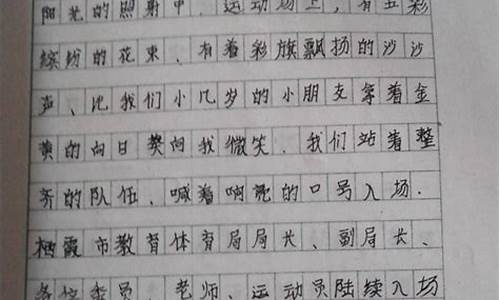 阳光的照射中。运动场上,有五彩
缤纷的花束、有着彩旗飘扬的沙沙
声、比我们小几岁的小朋友拿着金
黄的向日葵向我微笑。我们站着整
齐的队伍、喊着响亮的口号入场.
栖霞市教育体育局局长、副局长、
老师、运动员陆续入场